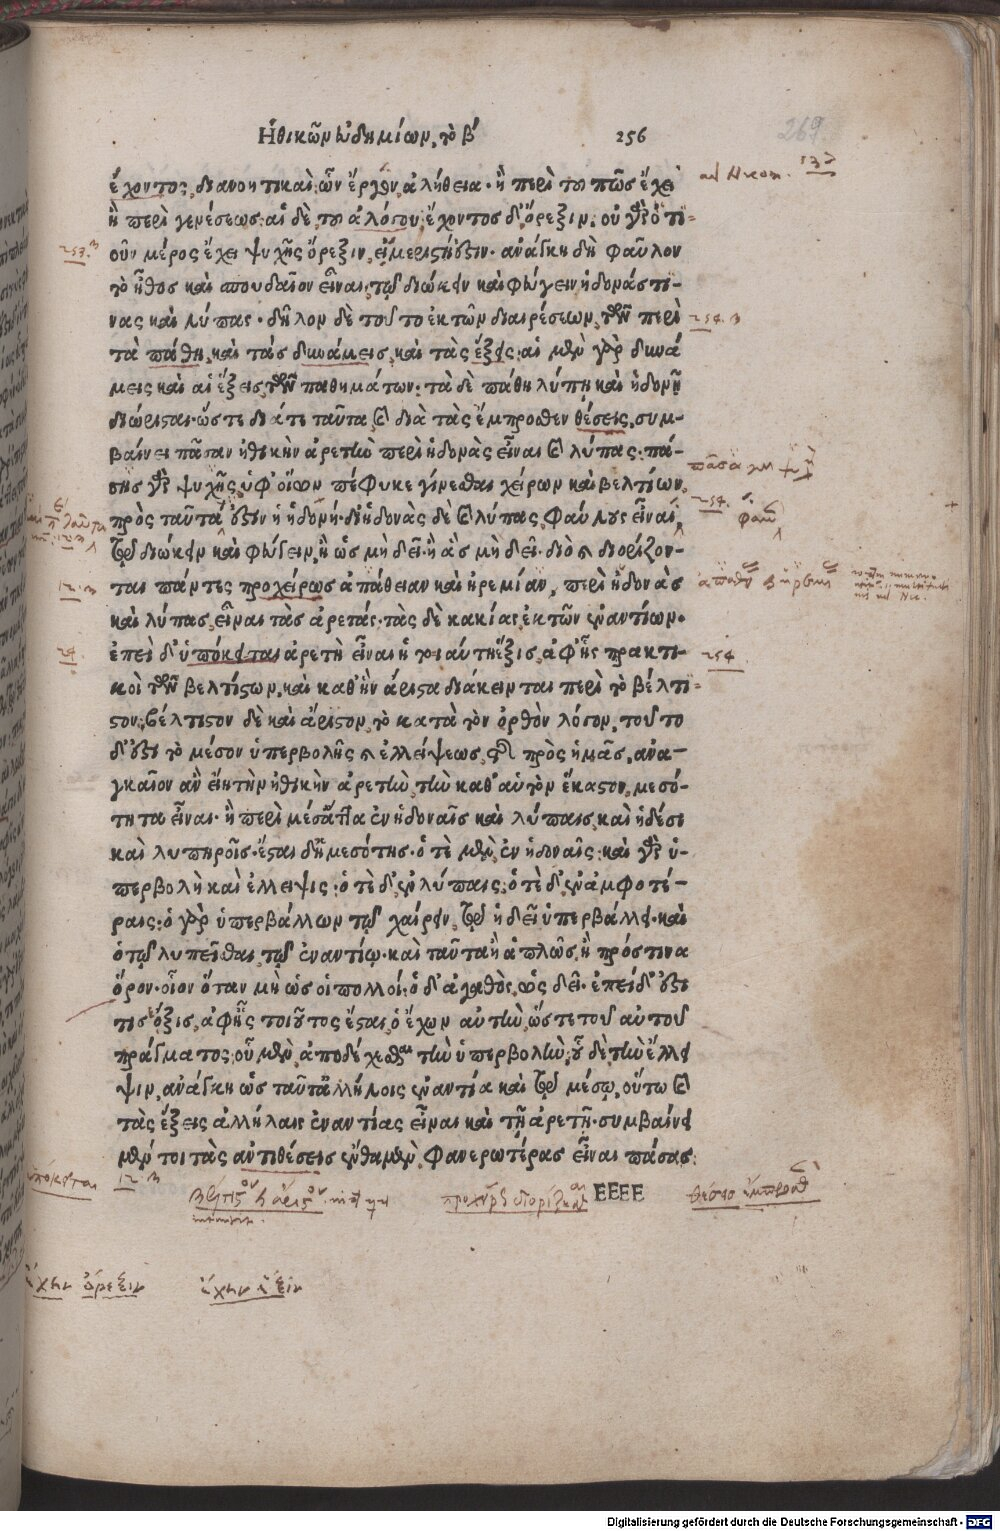 Ἠθικῶν εὐδημίων, τὸ βʹ 256
269
ἔχοντος, διανοητικαὶ· ὧν ἔργον, ἀλήθεια· ἢ περὶ τοῦ πῶς ἔχει
ἢ περὶ γενέσεως· αἱ δὲ, τοῦ ἀλόγου, ἔχοντος δ' ὄρεξιν· οὐ γὰρ ὁτι-
οῦν μέρος ἔχει ψυχῆς ὄρεξιν, εἰ μεριστή ἐστιν· ἀνάγκη δὴ φαῦλον
τὸ ἦθος καὶ σπουδαῖον εἶναι, τῷ διώκειν καὶ φεύγειν ἡδονάς τι-
νας καὶ λύπας· δῆλον δὲ τοῦτο ἐκ τῶν διαιρέσεων, τῶν περὶ
τὰ πάθη, καὶ τὰς δυνάμεις, καὶ τὰς ἕξεις· αἱ μὲν γὰρ δυνά
μεις καὶ αἱ ἕξεις τῶν παθημάτων· τὰ δὲ πάθη λύπῃ καὶ ἡδονῇ
διώρισται· ὥστε διά τε ταῦτα καὶ διὰ τὰς ἔμπροσθεν θέσεις, συμ-
βαίνει πᾶσαν ἠθικὴν ἀρετὴν περὶ ἡδονὰς εἶναι καὶ λύπας· πά-
σης γὰρ ψυχῆς, ὑφ' οἵων πέφυκε γίνεσθαι χείρων καὶ βελτίων,
πρὸς ταῦτά ἐστιν ἡ ἡδονή· δι' ἡδονὰς δὲ καὶ λύπας, φαύλους εἶναι,
τῷ διώκειν καὶ φεύγειν, ἢ ὡς μὴ δεῖ· ἢ ἃς μὴ δεῖ· διὸ καὶ διορίζον-
ται πάντες προχείρως ἀπάθειαν καὶ ἠρεμίαν, περὶ ἡδονὰς
καὶ λύπας, εἶναι τὰς ἀρετάς· τὰς δὲ κακίας ἐκ τῶν ἐναντίων.
ἐπεὶ δ' ὑπόκειται ἀρετὴ εἶναι ἡ τοιαύτη ἕξις, ἀφ' ἧς πρακτι-
κοὶ τῶν βελτίστων, καὶ καθ' ἣν ἄριστα διάκεινται περὶ τὸ βέλτι-
στον, βέλτιστον δὲ καὶ ἄριστον, τὸ κατὰ τὸν ὀρθὸν λόγον, τοῦτο
δ' ἐστὶ τὸ μέσον ὑπερβολῆς καὶ ἐλλείψεως, τῆς πρὸς ἡμᾶς, ἀνα-
γκαῖον ἂν εἴη τὴν ἠθικὴν ἀρετὴν τὴν καθ' αὑτὸν ἕκαστον, μεσό-
τητα εἶναι· ἢ περὶ μέσ' ἄττα ἐν ἡδοναῖς καὶ λύπαις, καὶ ἡδέσι
καὶ λυπηροῖς· ἔσται δ' ἡ μεσότης· ὁτὲ μὲν, ἐν ἡδοναῖς· καὶ γὰρ ὑ-
περβολὴ καὶ ἔλλειψις· ὁτὲ δ', ἐν λύπαις· ὁτὲ δ', ἐν ἀμφοτέ-
ραις· ὁ γὰρ ὑπερβάλλων τῷ χαίρειν, τῷ ἡδεῖ ὑπερβάλλει· καὶ
ὁ τῷ λυπεῖσθαι, τῷ ἐναντίῳ· καὶ ταῦτα ἢ ἁπλῶς, ἢ πρός τινα
ὅρον· οἷον ὅταν μὴ ὡς οἱ πολλοί· ὁ δ' ἀγαθὸς, ὡς δεῖ· ἐπεὶ δ' ἐστί
τις ἕξις, ἀφ' ἧς τοιοῦτος ἔσται, ὁ ἔχων αὐτὴν, ὥστε τοῦ αὐτοῦ
πράγματος, οὗ μὲν, ἀποδέχεσθαι τὴν ὑπερβολὴν, οὗ δὲ, τὴν ἔλλει
ψιν, ἀνάγκη ὡς ταῦτ' ἀλλήλοις ἐναντία καὶ τῷ μέσῳ, οὕτω καὶ
τὰς ἕξεις ἀλλήλαις ἐναντίας εἶναι καὶ τῇ ἀρετῇ· συμβαίνει
μέν τοι τὰς ἀντιθέσεις ἔνθα μὲν, φανερωτέρας εἶναι πάσας·
EEEE
ad Nicom.
254
254
254
24
ἔχειν ὄρεξιν
ἔχειν ἕξιν
Digitalisierung gefördert durch die Deutsche Forschungsgemeinschaft - DFG